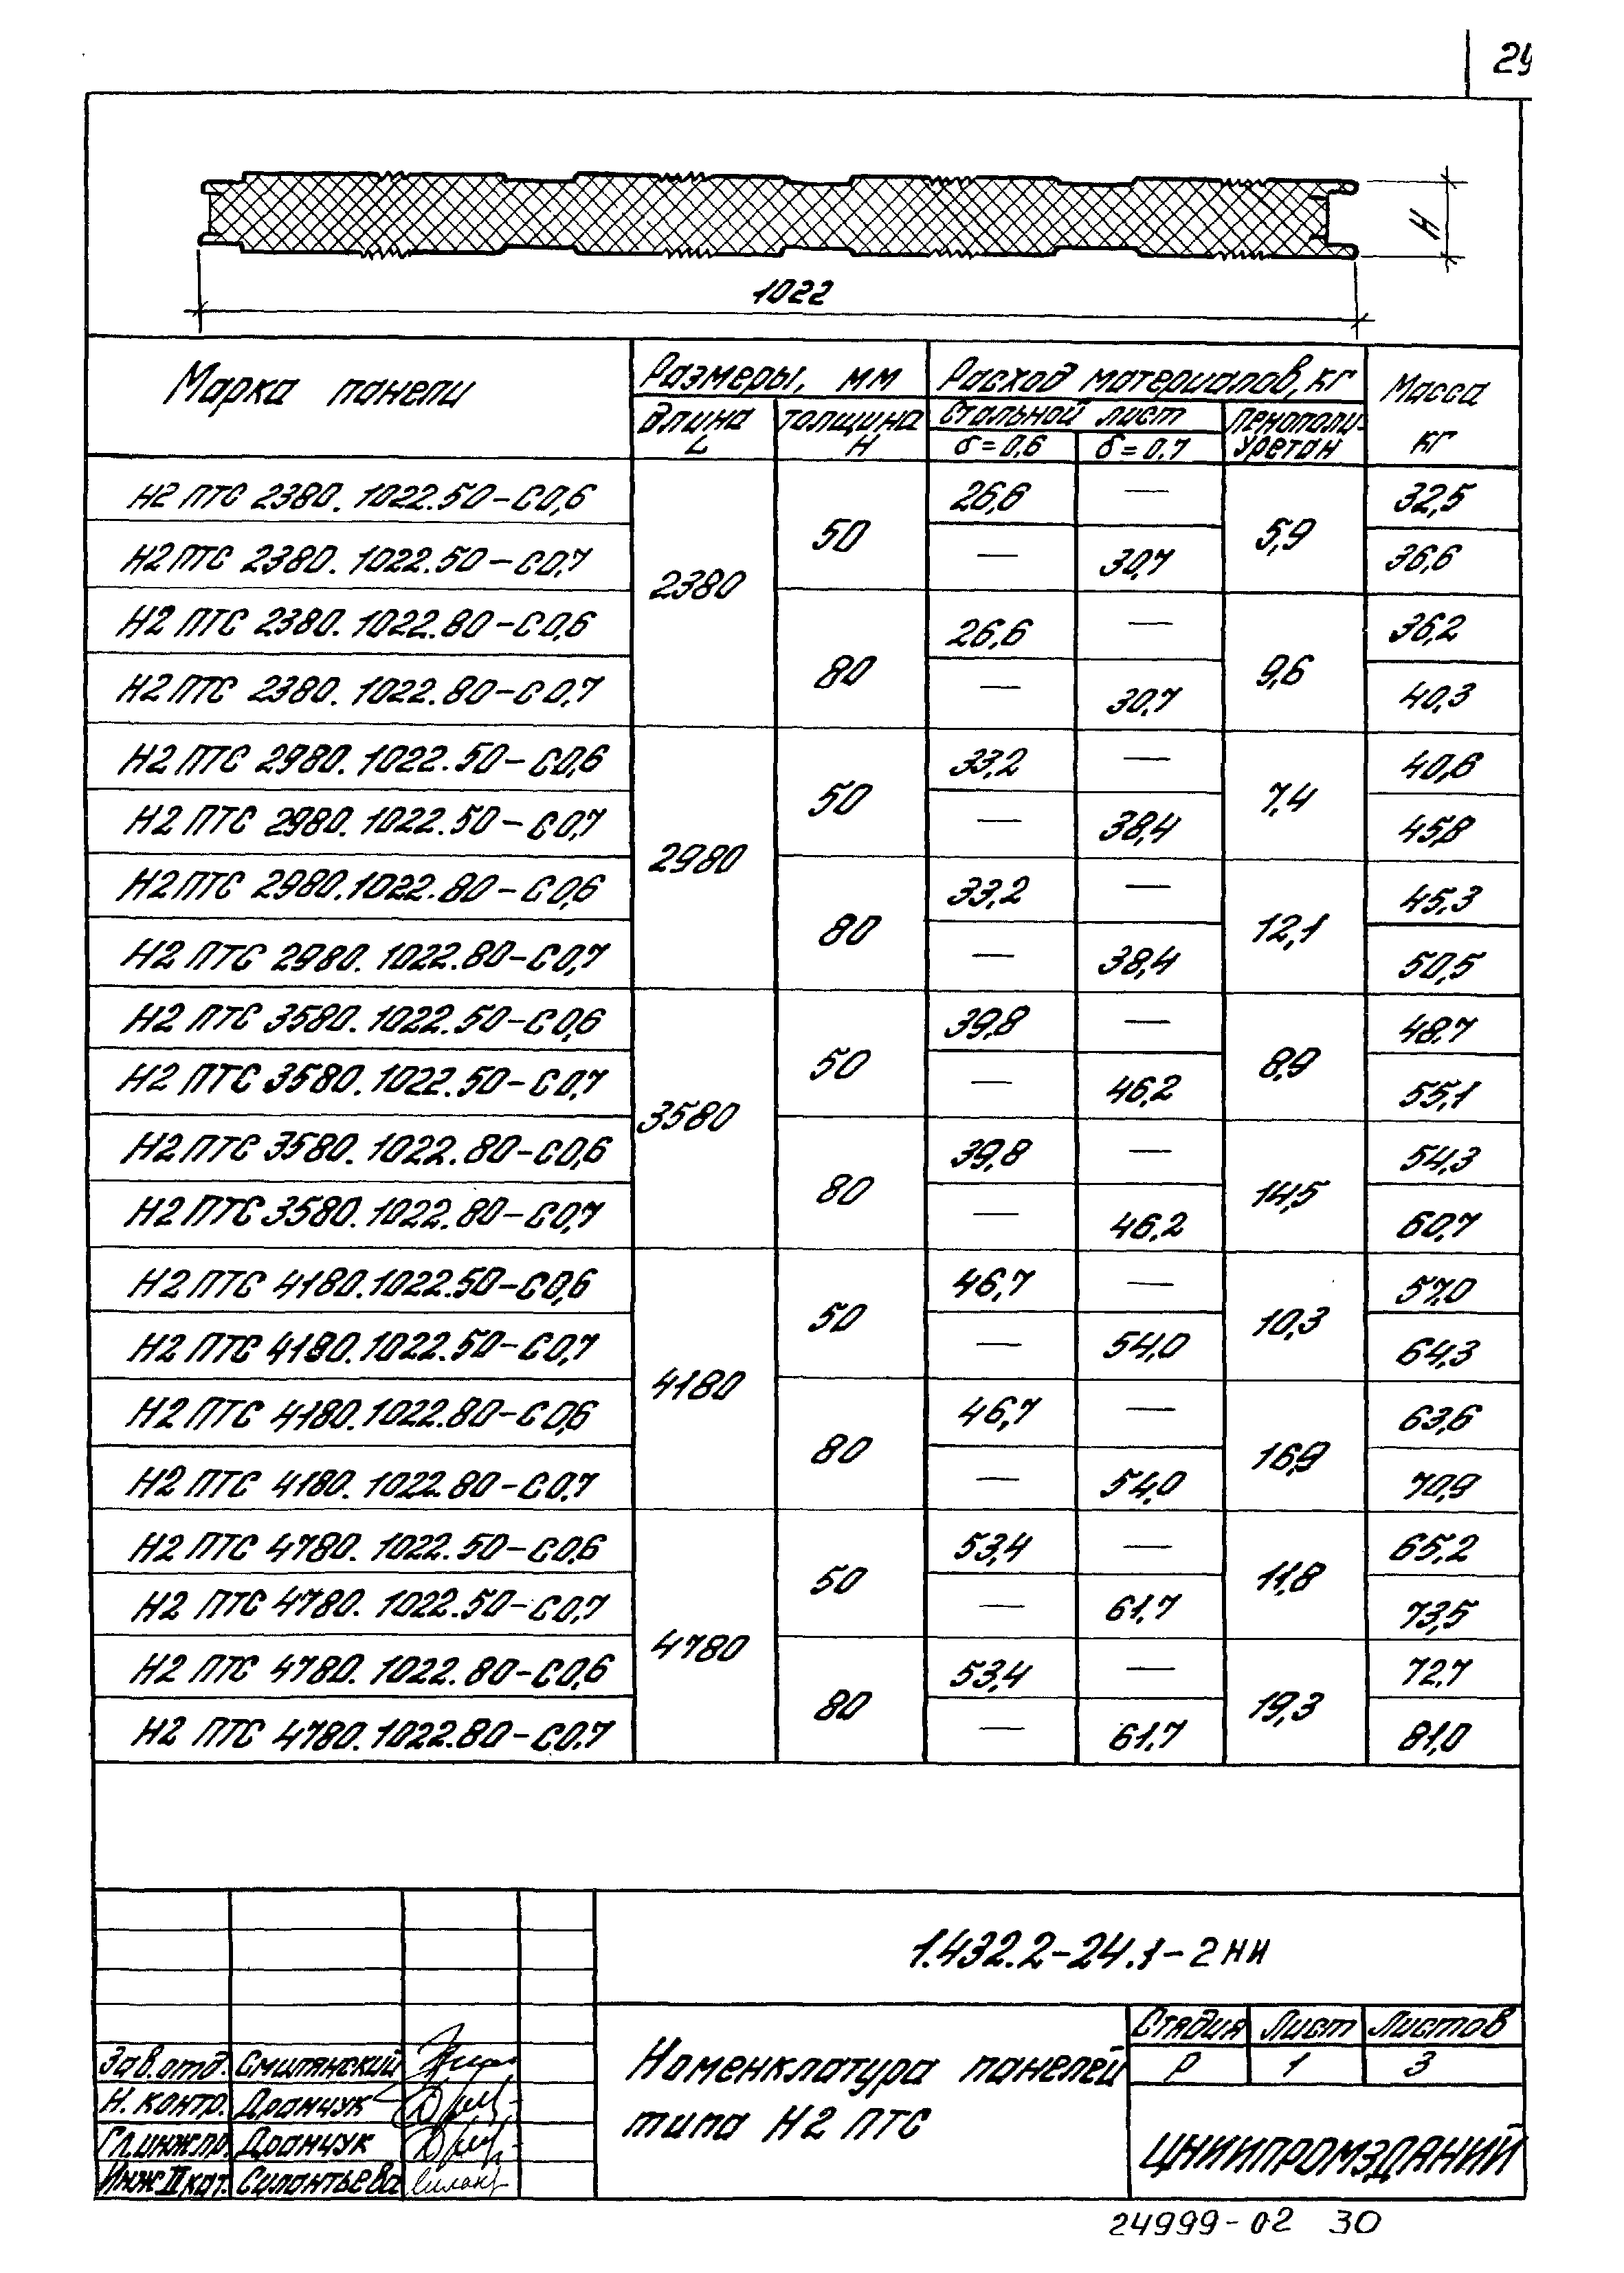 29
H
1022
Марка панели
Размеры, мм
Расход материалов, кг
Масса
кг
Длина
L
Толщина
H
Стальной лист
δ=0,6
δ=0,7
Пенополи-
уретан
Н2 ПТС 2380.1022.50-С0,6 2380 50 26,6 — 5,9 32,5
Н2 ПТС 2380.1022.50-С0,7 — 30,7 36,6
Н2 ПТС 2380.1022.80-С0,6 80 26,6 — 9,6 36,2
Н2 ПТС 2380.1022.80-С0,7 — 30,7 40,3
Н2 ПТС 2980.1022.50-С0,6 2980 50 33,2 — 7,4 40,6
Н2 ПТС 2980.1022.50-С0,7 — 38,4 45,8
Н2 ПТС 2980.1022.80-С0,6 80 33,2 — 12,1 45,3
Н2 ПТС 2980.1022.80-С0,7 — 38,4 50,5
Н2 ПТС 3580.1022.50-С0,6 3580 50 39,8 — 8,9 48,7
Н2 ПТС 3580.1022.50-С0,7 — 46,2 55,1
Н2 ПТС 3580.1022.80-С0,6 80 39,8 — 14,5 54,3
Н2 ПТС 3580.1022.80-С0,7 — 46,2 60,7
Н2 ПТС 4180.1022.50-С0,6 4180 50 46,7 — 10,3 57,0
Н2 ПТС 4180.1022.50-С0,7 — 54,0 64,3
Н2 ПТС 4180.1022.80-С0,6 80 46,7 — 16,9 63,6
Н2 ПТС 4180.1022.80-С0,7 — 54,0 70,9
Н2 ПТС 4780.1022.50-С0,6 4780 50 53,4 — 11,8 65,2
Н2 ПТС 4780.1022.50-С0,7 — 61,7 73,5
Н2 ПТС 4780.1022.80-С0,6 80 53,4 — 19,3 72,7
Н2 ПТС 4780.1022.80-С0.7 — 61,7 81,0
1.432.2-24.1-2НИ
Зав.отд. Смилянский
Н. контр. Дранчук
Гл.инж.пр. Дранчук
Инж II кат. Силантьева
Номенклатура панелей
типа Н2 ПТС
Стадия Лист Листов
Р 1 3
ЦНИИПРОМЗДАНИЙ
24999-02 30